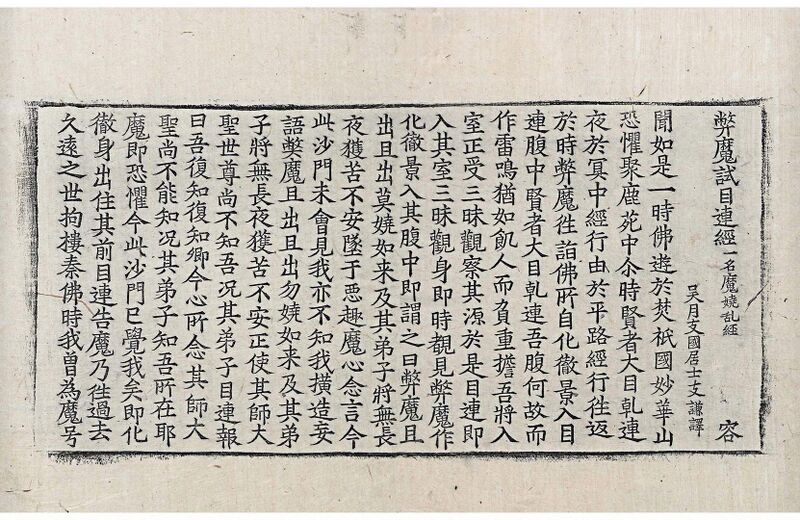 弊魔試目連經 一名魔嬈乱経 容
吳月支國居士支謙譯
聞如是一時佛遊於焚祇國妙華山
恐懼聚鹿苑中尒時賢者大目乹連
夜於冥中經行由於平路經行往返
於時弊魔往詣佛所自化徹景入目
連腹中賢者大目乹連吾腹何故而
作雷鳴猶如飢人而負重擔吾將入
室正受三昧觀察其源於是目連即
入其室三昧觀身即時覩見弊魔作
化徹景入其腹中即謂之曰弊魔且
出且出莫嬈如来及其弟子將無長
夜獲苦不安墜于惡趣魔心念言今
此沙門未曾見我亦不知我橫造妄
語弊魔且出且出勿嬈如来及其弟
子將無長夜獲苦不安正使其師大
聖世尊尚不知吾况其弟子目連報
曰吾復知復知卿今心所念其師大
聖尚不能知况其弟子知吾所在耶
魔即恐懼今此沙門已覺我矣即化
徹身出住其前目連告魔乃往過去
久遠之世拘樓秦佛時我曽為魔号